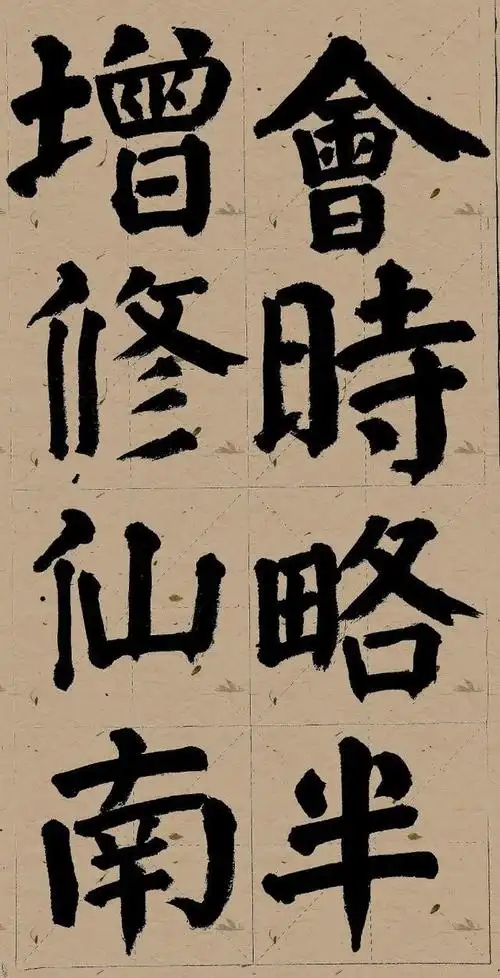 會時略半
增修仙南